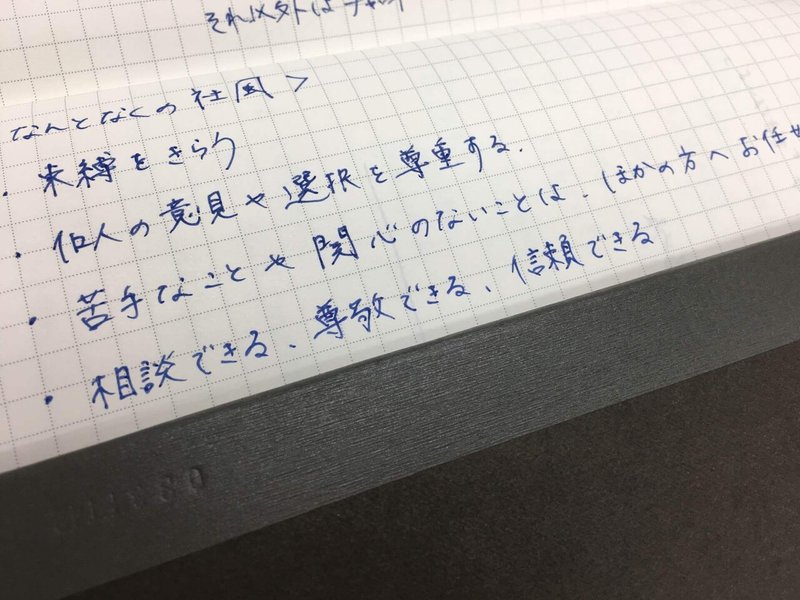 それ以外はチャット
なんとなくの社風>
・束縛をきらう
・他人の意見や選択を尊重する.
・苦手なことや関心のないことは、ほかの方へお任せ
・相談できる、尊敬できる、信頼できる